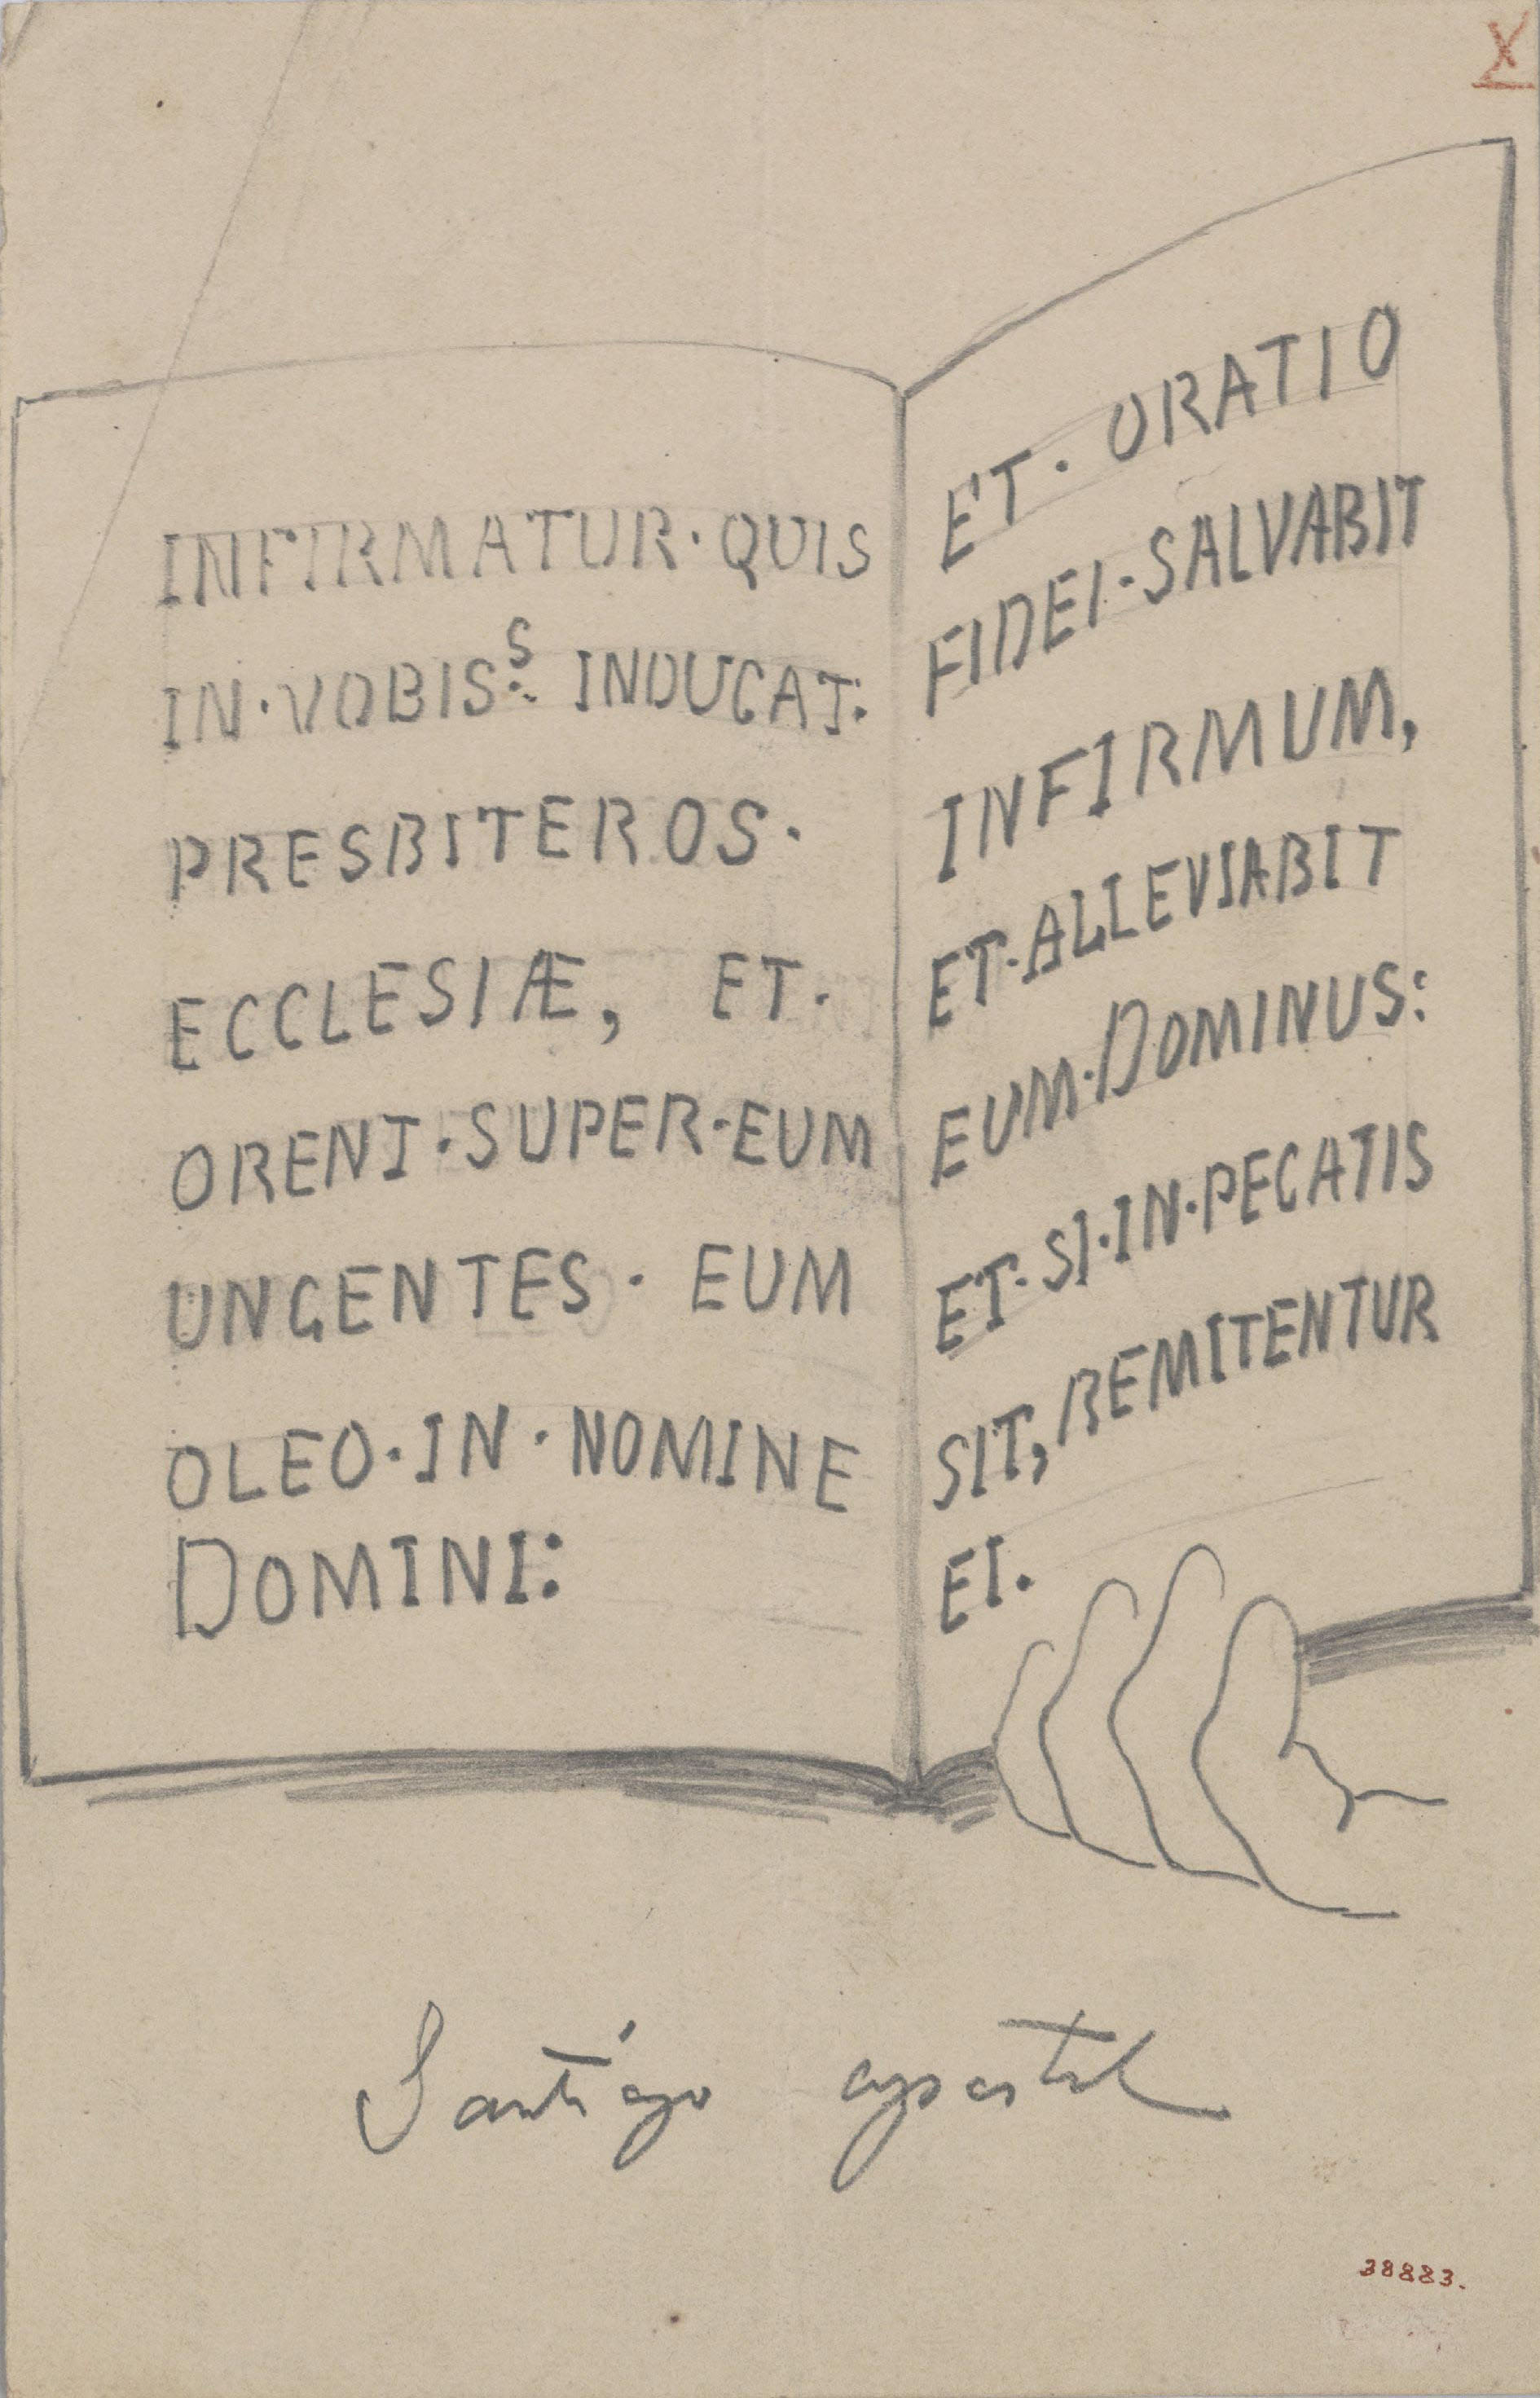 X
INFIRMATUR·QUIS
IN·VOBIS:S INDUCAT:
PRESBITEROS·
ECCLESIÆ, ET·
ORENT·SUPER·EUM
UNGENTES· EUM
OLEO·IN·NOMINE
DOMINI:
ET· ORATIO
FIDEI·SALVABIT
INFIRMUM,
ET·ALLEVIABIT
EUM·DOMINUS:
ET·SI·IN·PECATIS
SIT, REMITENTUR
EI.
Santiágo apostol
38883.